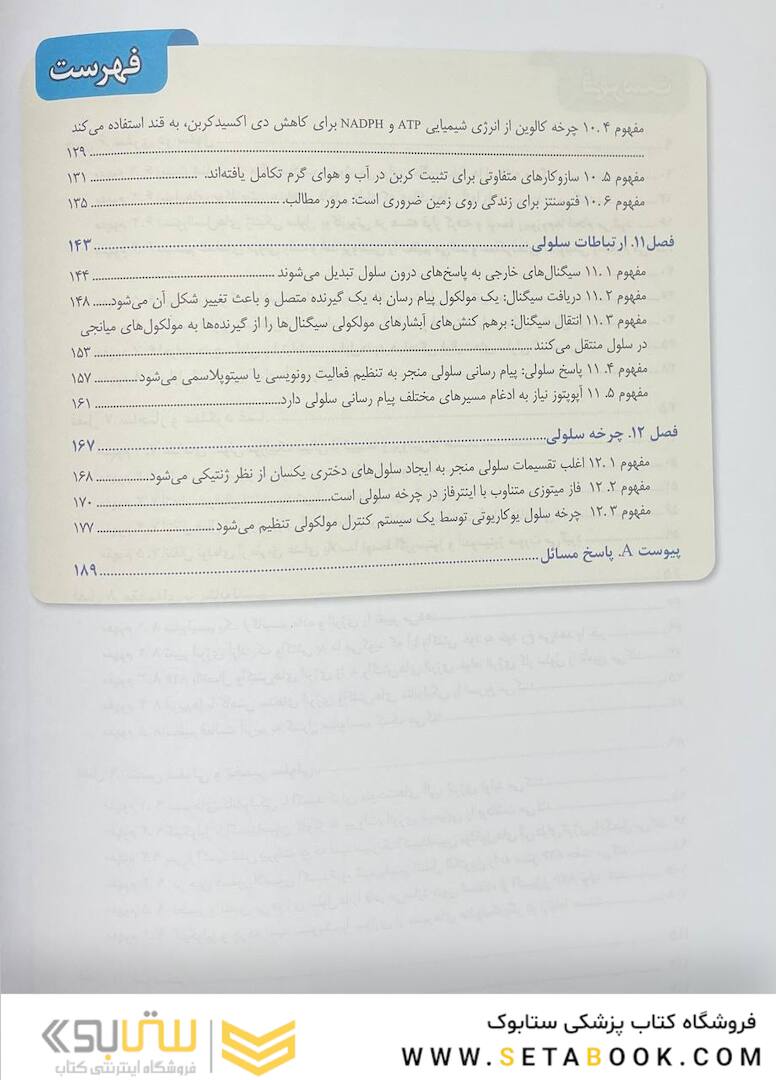 فهرست
مفهوم ۱۰.۴ چرخه کالوین از انرژی شیمیایی ATP و NADPH برای کاهش دی اکسیدکربن، به قند استفاده می‌کند
.......... ۱۲۹
مفهوم ۱۰.۵ سازوکارهای متفاوتی برای تثبیت کربن در آب و هوای گرم تکامل یافته‌اند. .......... ۱۳۱
مفهوم ۱۰.۶ فتوسنتز برای زندگی روی زمین ضروری است: مرور مطالب. .......... ۱۳۵
فصل۱۱. ارتباطات سلولی .......... ۱۴۳
مفهوم ۱۱.۱ سیگنال‌های خارجی به پاسخ‌های درون سلول تبدیل می‌شوند .......... ۱۴۴
مفهوم ۱۱.۲ دریافت سیگنال: یک مولکول پیام رسان به یک گیرنده متصل و باعث تغییر شکل آن می‌شود...... ۱۴۸
مفهوم ۱۱.۳ انتقال سیگنال: برهم کنش‌های آبشارهای مولکولی سیگنال‌ها را از گیرنده‌ها به مولکول‌های میانجی
در سلول منتقل می‌کنند .......... ۱۵۳
مفهوم ۱۱.۴ پاسخ سلولی: پیام رسانی سلولی منجر به تنظیم فعالیت رونویسی یا سیتوپلاسمی می‌شود .......... ۱۵۷
مفهوم ۱۱.۵ آپوپتوز نیاز به ادغام مسیرهای مختلف پیام رسانی سلولی دارد. .......... ۱۶۱
فصل ۱۲. چرخه سلولی .......... ۱۶۷
مفهوم ۱۲.۱ اغلب تقسیمات سلولی منجر به ایجاد سلول‌های دختری یکسان از نظر ژنتیکی می‌شود. .......... ۱۶۸
مفهوم ۱۲.۲ فاز میتوزی متناوب با اینترفاز در چرخه سلولی است .......... ۱۷۰
مفهوم ۱۲.۳ چرخه سلول یوکاریوتی توسط یک سیستم کنترل مولکولی تنظیم می‌شود .......... ۱۷۷
پیوست A. پاسخ مسائل .......... ۱۸۹
فروشگاه کتاب پزشکی ستابوک
WWW.SETABOOK.COM
ستابوک
فروشگاه اینترنتی کتاب